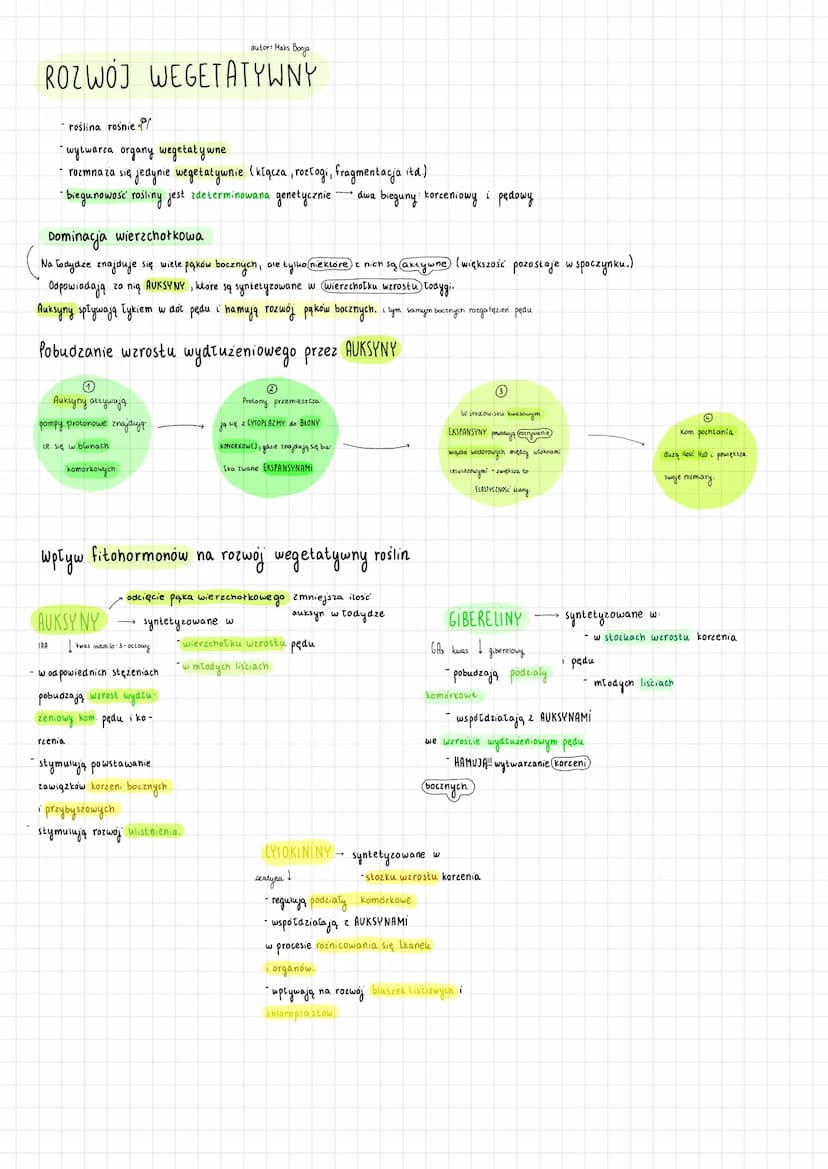 autor: Maks Bonja
ROZWÓJ WEGETATYWNY
- roślina rośnie
- wytwarza organy wegetatywne
- rozmnaża się jedynie wegetatywnie (kłącza, rozłogi, fragmentacja itd.)
- biegunowość rośliny jest zdeterminowana genetycznie → dwa bieguny: korzeniowy i pędowy
Dominacja wierzchołkowa
Na łodydze znajduje się wiele pąków bocznych, ale tylko niektóre z nich są aktywne (większość pozostaje w spoczynku.)
Odpowiadają za nią AUKSYNY, które są syntetyzowane w wierzchołku wzrostu łodygi.
Auksyny spływają łykiem w dół pędu i hamują rozwój pąków bocznych. i tym samym bocznych rozgałęzień pędu
Pobudzanie wzrostu wydłużeniowego przez AUKSYNY
①
Auksyny aktywują
pompy protonowe znajdują-
ce się w błonach
komórkowych
②
Protony przemieszcza-
ją się z CYTOPLAZMY do BŁONY
KOMÓRKOWEJ, gdzie znajdują się bia-
łka zwane EKSPANSYNAMI
③
W środowisku kwasowym
EKSPANSYNY powodują rozrywanie
wiązań wodorowych między włóknami
celulozowymi - zwiększa to
ELASTYCZNOŚĆ ściany.
④
Kom. pochłania
dużą ilość H2O i powiększa
swoje rozmiary.
Wpływ fitohormonów na rozwój wegetatywny roślin
odcięcie pąka wierzchołkowego zmniejsza ilość
auksyn w łodydze
AUKSYNY → syntetyzowane w
- wierzchołku wzrostu pędu
- w młodych liściach
IAA ↓ kwas indolilo-3-octowy
- w odpowiednich stężeniach
pobudzają wzrost wydłu-
żeniowy kom. pędu i ko-
rzenia
- stymulują powstawanie
zawiązków korzeni bocznych
i przybyszowych
- stymulują rozwój ulistnienia.
GIBERELINY → syntetyzowane w:
- w stożkach wzrostu korzenia
i pędu
- młodych liściach
GA3 kwas ↓ giberelowy
- pobudzają podziały
komórkowe
- współdziałają z AUKSYNAMI
we wzroście wydłużeniowym pędu
- HAMUJĄ!!! wytwarzanie korzeni
bocznych.
CYTOKININY → syntetyzowane w
- stożku wzrostu korzenia
zeatyna ↓
- regulują podziały komórkowe
- współdziałają z AUKSYNAMI
w procesie różnicowania się tkanek
i organów.
- wpływają na rozwój blaszek liściowych i
chloroplastów